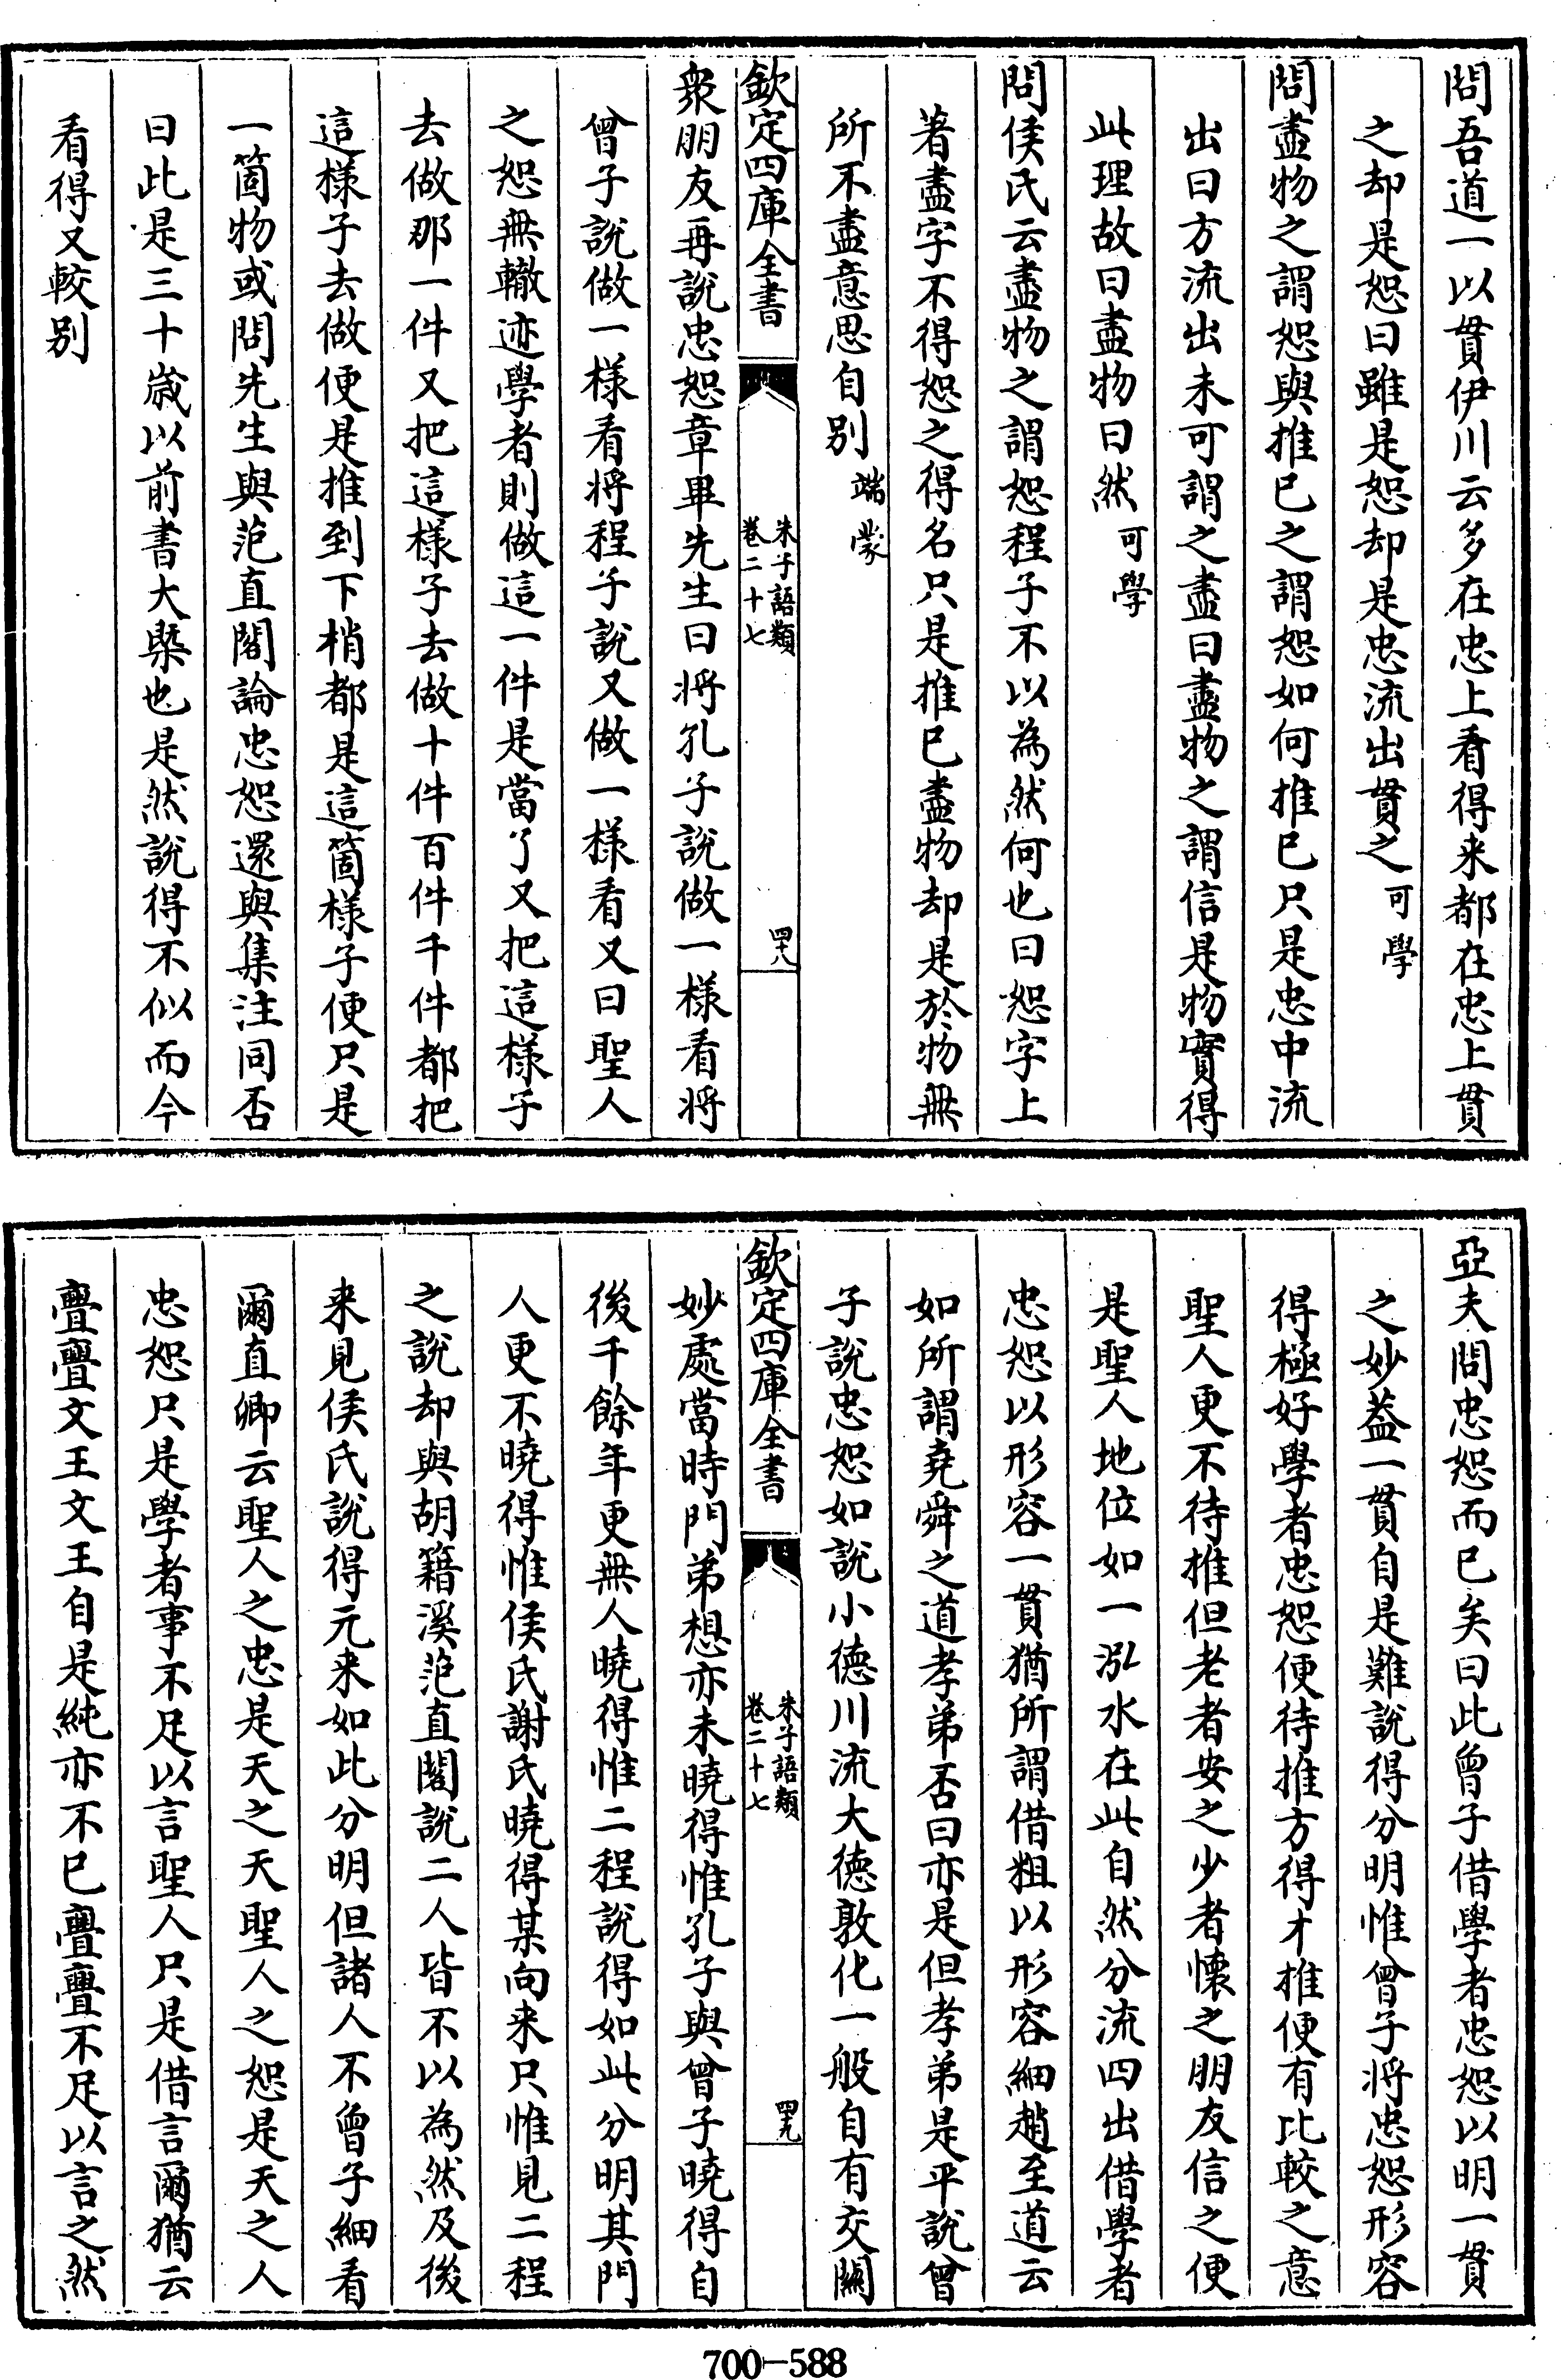 問吾道一以貫伊川云多在忠上看得来都在忠上貫
之却是恕曰雖是恕却是忠流出貫之可學
問盡物之謂恕與推已之謂恕如何推已只是忠中流
出曰方流出未可謂之盡曰盡物之謂信是物實得
此理故曰盡物曰然可學
問侯氏云盡物之謂恕程子不以為然何也曰恕字上
著盡字不得恕之得名只是推已盡物却是於物無
所不盡意思自别端蒙
欽定四庫全書
朱子語類
卷二十七
四十八
衆朋友再說忠恕章畢先生曰將孔子說做一樣看將
曾子說做一樣看將程子說又做一樣看又曰聖人
之恕無轍迹學者則做這一件是當了又把這樣子
去做那一件又把這樣子去做十件百件千件都把
這樣子去做便是推到下梢都是這箇樣子便只是
一箇物或問先生與范直閣論忠恕還與集注同否
曰此是三十歲以前書大槩也是然說得不似而今
看得又較别
亞夫問忠恕而已矣曰此曾子借學者忠恕以明一貫
之妙葢一貫自是難說得分明惟曾子將忠恕形容
得極好學者忠恕便待推方得才推便有比較之意
聖人更不待推但老者安之少者懷之朋友信之便
是聖人地位如一泓水在此自然分流四出借學者
忠恕以形容一貫猶所謂借粗以形容細趙至道云
如所謂堯舜之道孝弟否曰亦是但孝弟是平說曾
子說忠恕如說小德川流大德敦化一般自有交關
欽定四庫全書
朱子語類
卷二十七
四十九
妙處當時門弟想亦未曉得惟孔子與曾子曉得自
後千餘年更無人曉得惟二程說得如此分明其門
人更不曉得惟侯氏謝氏曉得某向来只惟見二程
之說却與胡籍溪范直閣說二人皆不以為然及後
来見侯氏說得元来如此分明但諸人不曾子細看
爾直卿云聖人之忠是天之天聖人之恕是天之人
忠恕只是學者事不足以言聖人只是借言爾猶云
亹亹文王文王自是純亦不已亹亹不足以言之然
700-588